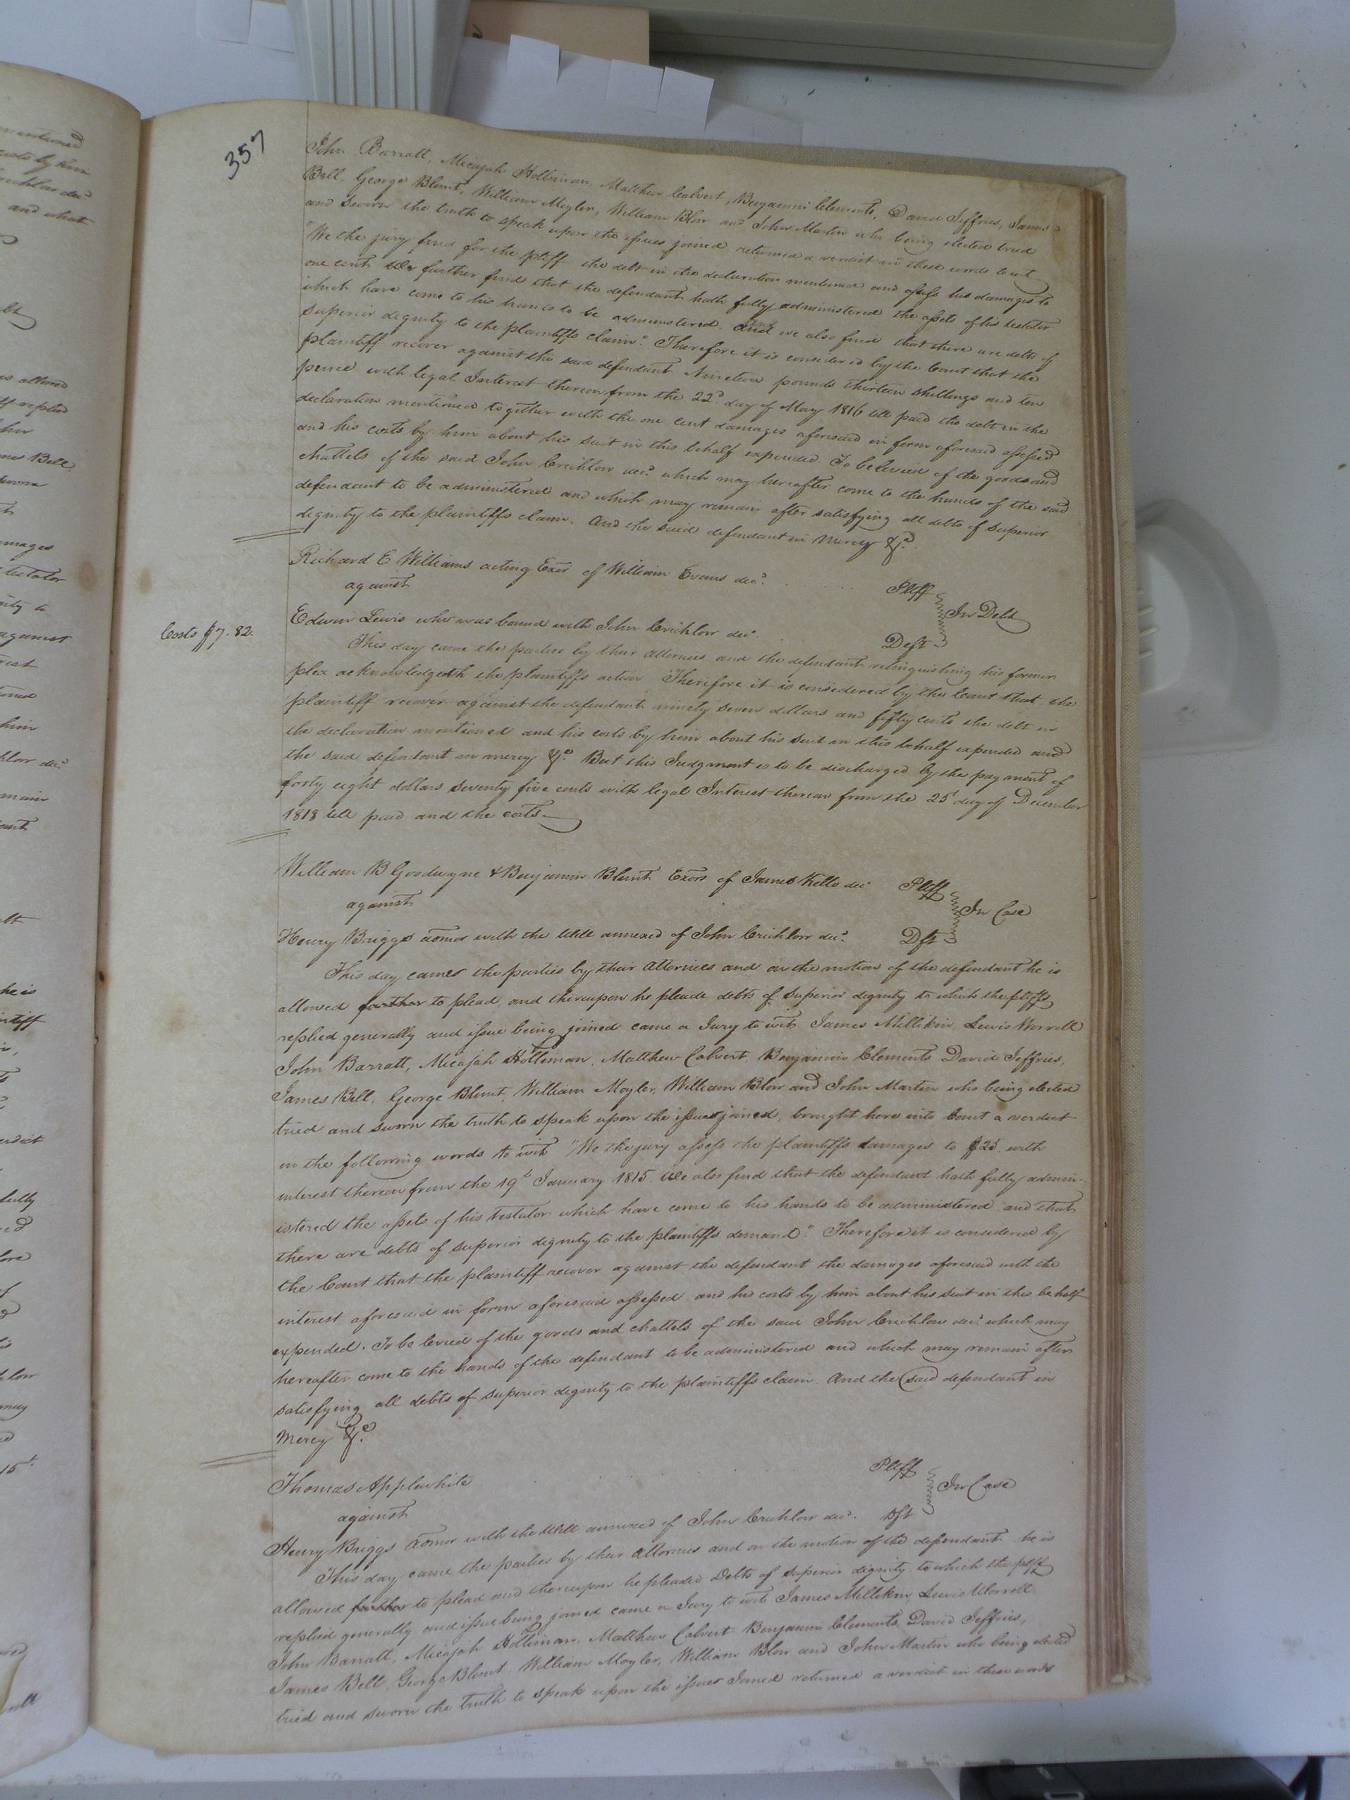 357
John Barratt, Micajah Holleman, Matthew Calvert, Benjamin Clements, David Jeffries, James
Bell, George Blunt, William Moyler, William Blow and John Martin who being elected tried
and sworn the truth to speak upon the issues joined returned a verdict in these words to wit
"We the jury find for the pltff the debt in the declaration mentioned and assess his damages to
one cent We further find that the defendant hath fully administered the assets of his testator
which have come to his hands to be administered. And we also find that there are debts of
superior dignity to the plaintiffs claim." Therefore it is considered by the Court that the
plaintiff recover against the said defendant Nineteen pounds thirteen shillings and ten
pence with legal Interest thereon from the 22d day of May 1816 till paid the debt in the
declaration mentioned together with the one cent damages aforesaid in form aforesaid assessed
and his costs by him about his suit in this behalf expended To be levied of the goods and
chattels of the said John Crichlow decd which may hereafter come to the hands of the said
defendant to be administered and which may remain after satisfying all debts of superior
dignity to the plaintiffs claim. And the said defendant in Mercy &c.
Richard E Williams acting Exor of William Evans decd. Pltff
against In Debt
Edwin Lewis who was bound with John Crichlow decd Deft
Costs $7.82.
This day came the parties by their attornies and the defendant relinquishing his former
plea acknowledgeth the plaintiffs action Therefore it is considered by the Court that the
plaintiff recover against the defendant ninety seven dollars and fifty cents the debt in
the declaration mentioned and his costs by him about his suit in this behalf expended and
the said defendant in mercy &c. But this Judgment is to be discharged by the payment of
forty eight dollars seventy five cents with legal Interest thereon from the 25th day of December
1818 till paid and the costs
William B Goodwyne & Benjamin Blunt Exors of James Kello decd Pltff
against In Case
Henry Briggs admor with the Will annexed of John Crichlow decd. Dft
This day came the parties by their attornies and on the motion of the defendant he is
allowed further to plead, and thereupon he pleads debts of superior dignity to which the pltffs
replied generally and issue being joined came a Jury to wit James Millikin, Lewis Worrell
John Barratt, Micajah Holleman, Matthew Calvert Benjamin Clements David Jeffries,
James Bell, George Blunt, William Moyler, William Blow and John Martin who being elected
tried and sworn the truth to speak upon the issues joined, brought here into Court a verdict
in the following words to wit "We the jury assess the plaintiffs damages to $25. with
interest thereon from the 19th January 1815 We also find that the defendant hath fully admin-
istered the assets of his testator which have come to his hands to be administered and that
there are debts of superior dignity to the plaintiffs demand" Therefore it is considered by
the Court that the plaintiff recover against the defendant the damages aforesaid with the
interest aforesaid in form aforesaid assessed and his costs by him about his suit in this behalf
expended. To be levied of the goods and chattels of the said John Crichlow decd which may
hereafter come to the hands of the defendant to be administered and which may remain after
satisfying all debts of superior dignity to the plaintiffs claim. And the said defendant in
Mercy &c.
Thomas Applewhite Pltff
against In Case
Henry Briggs admor with the Will annexed of John Crichlow decd. Dft
This day came the parties by their attornies and on the motion of the defendant he is
allowed further to plead and thereupon he pleaded Debts of superior dignity to which the pltff
replied generally and issue being joined came a Jury to wit James Millikin, Lewis Worrell
John Barratt, Micajah Holleman, Matthew Calvert Benjamin Clements, David Jeffries,
James Bell, George Blunt William Moyler, William Blow and John Martin who being elected
tried and sworn the truth to speak upon the issues joined returned a verdict in these words